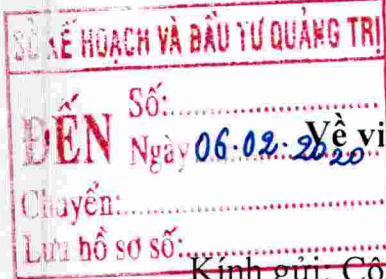 SỞ KẾ HOẠCH VÀ ĐẦU TƯ QUẢNG TRỊ
ĐẾN
Số:
Ngày 06.02.2020
Về vi
Chuyển:
Lưu hồ sơ số:
Kính gửi: Cô